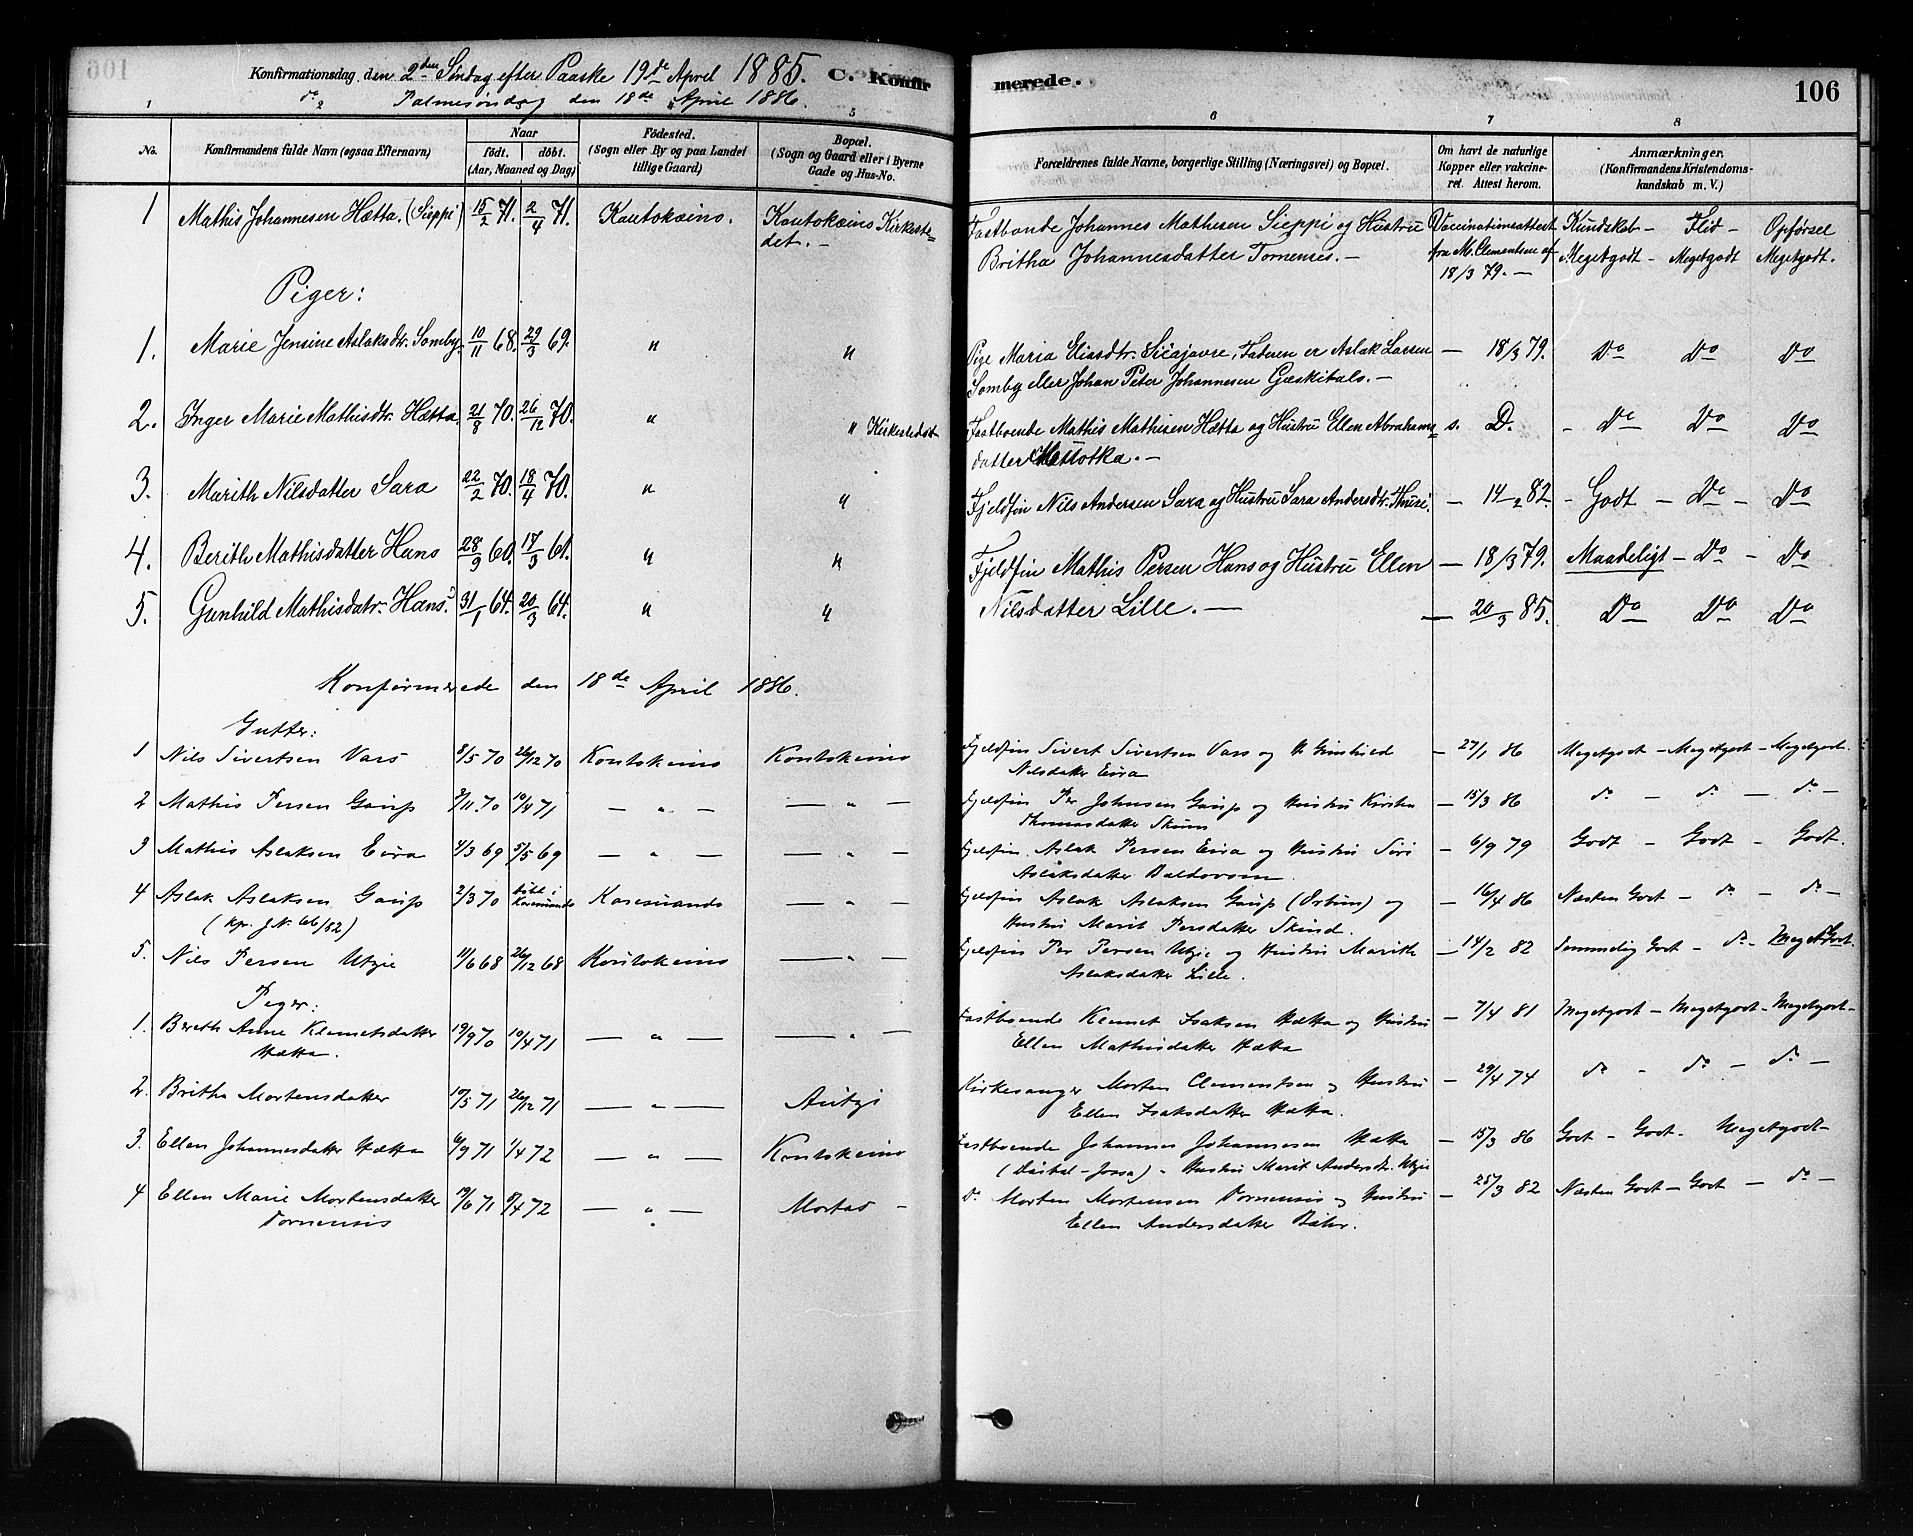 Konfirmationsdag, den 2den Søndag efter Paaske 19de April 1885. C. Konfirmerede. 106
do Palmesøndag den 18de April 1886.
1 2 5 6 7 8
No. Konfirmandens fulde Navn (ogsaa Efternavn) Naar født. døbt. (Aar, Maaned og Dag) Fødested. (Sogn eller By og paa Landet tillige Gaard) Bopæl. (Sogn og Gaard eller i Byerne Gade og Hus-No. Forældrenes fulde Navne, borgerlige Stilling (Næringsvei) og Bopæl. Om havt de naturlige Kopper eller vakcineret. Attest herom. Anmærkninger. (Konfirmandens Kristendomskundskab m. V.)
1 Mathis Johannesen Hætta. (Sieppi) 15/2 71. 2/4 71. Kautokeino. Kautokeino Kirkestedet. - Fastboende Johannes Mathesen Sieppi og Hustru Vaccinationsattest Kundskab - Flid - Opførsel
Britha Johannesdatter Tornensis. - fra M. Clementsen af 18/3 79. - Megetgodt - Megetgodt Megetgodt.
Piger:
1. Marie Jensine Aslaksdtr. Somby. 10/11 68. 29/3 69. " " Pige Maria Eliasdtr. Sicajavre, Faderen er Aslak Larsen - 18/3 79. Do Do Do
Somby eller Johan Peter Johannesen Gæskitalo. -
2. Inger Marie Mathisdtr. Hætta. 21/8 70. 26/12 70. " " Kirkestedet Fastboende Mathis Mathisen Hætta og Hustru Ellen Abrahams= s. D. - Do Do Do
datter Mettotka. -
3. Marith Nilsdatter Sara 22/2 70. 18/4 70. " " Fjeldfin Nils Andersen Sara og Hustru Sara Andersdtr. - 14/2 82. - Godt - Do - Do
4. Berith Mathisdatter Hans 28/9 60. 17/3 61. " " Fjeldfin Mathis Persen Hans og Hustru Ellen - 18/3 79. Maadeligt - Do - Do
5. Gunhild Mathisdatr. Hans. 31/1 64. 20/3 64. " " Nilsdatter Lille. - - 20/3 85. Do Do Do
Konfirmerede den 18de April 1886.
Gutter:
1 Nils Sivertsen Vars 8/5 70 26/12 70 Koutokeino Koutokeino Fjeldfin Sivert Sivertsen Vars og H. Gunhild - 27/1 86 Megetgodt - Megetgodt - Megetgodt.
Nilsdatter Eira
2 Mathis Persen Gaup 9/11 70 10/4 71 - " - - " - Fjeldfin Per Johnsen Gaup og Hustru Kirsten - 15/3 86 do - do - do -
Thomasdatter Skum
3 Mathis Aslaksen Eira 4/3 69 5/5 69 - " - - " - Fjeldfin Aslak Persen Eira og Hustru Siri - 6/9 79 Godt - Godt - Godt.
Aslaksdatter
4 Aslak Aslaksen Gaup 2/3 70 døbt i Karesuando Karesuando - " - Fjeldfin Aslak Aslaksen Gaup og - 16/4 86 Næsten Godt - do - do -
(kp. J. No. 66/82) Hustru Marit Persdatter Skind.
5. Nils Persen Utzie 11/6 68 26/12 68 Koutokeino - " - Fjeldfin Per Persen Utzie og Hustru Marith - 14/2 82 Temmelig Godt - do - Meget Godt.
Aslaksdatter Lille.
Piger:
1. Bereth Anne Klemetsdatter 19/9 70 10/4 71 - " - - " - Fastboende Klemet Isaksen Hætta og Hustru - 7/4 81 Megetgodt - Megetgodt - Megetgodt -
Hætta. Ellen Mathisdatter Hætta
2. Britha Mortensdatter 10/5 71 26/12 71 - " - Autzi Kirkesanger Morten Clementsen og Hustru - 29/4 74 do - do - do -
Ellen Isaksdatter Hætta.
3. Ellen Johannesdatter Hætta 6/9 71 1/4 72 - " - Koutokeino Fastboende Johannes Johannesen Hætta - 15/3 86 Godt - Godt - Megetgodt -
Hustru Marit Andersdtr. Utzie
4 Ellen Marie Mortensdatter 19/6 71 8/4 72 - " - Mortas - do Morten Mortensen Tornensis og Hustru - 25/3 82 Næsten Godt - Godt - do -
Tornensis Ellen Andersdatter Bæhr.